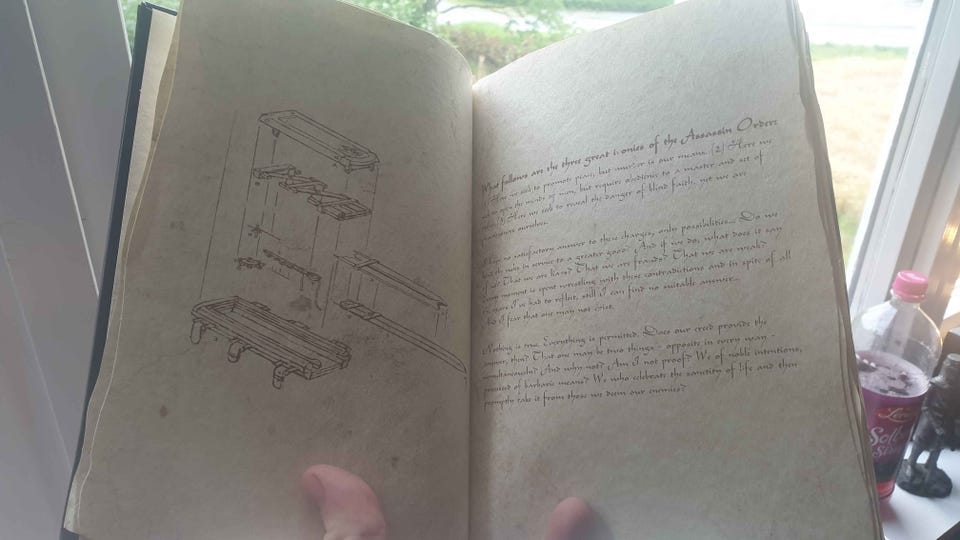 What follows are the three great ironies of the Assassin Order:
Here we seek to promote peace, but murder is our means. (2) Here we
seek to open the minds of men, but require obedience to a master and set of
(3) Here we seek to reveal the danger of blind faith, yet we are
practitioners ourselves.
I have no satisfactory answer to these charges, only possibilities... Do we
bend the rules in service to a greater good? And if we do, what does it say
of us? That we are liars? That we are frauds? That we are weak?
Every moment is spent wrestling with these contradictions and in spite of all
the years I've had to reflect, still I can find no suitable answer...
And I fear that one may not exist.
Nothing is true. Everything is permitted. Does our creed provide the
answer, then? That one may be two things - opposite in every way -
simultaneously? And why not? Am I not proof? We of noble intentions,
possessed of barbaric means? We who celebrate the sanctity of life and then
promptly take it from those we deem our enemies?